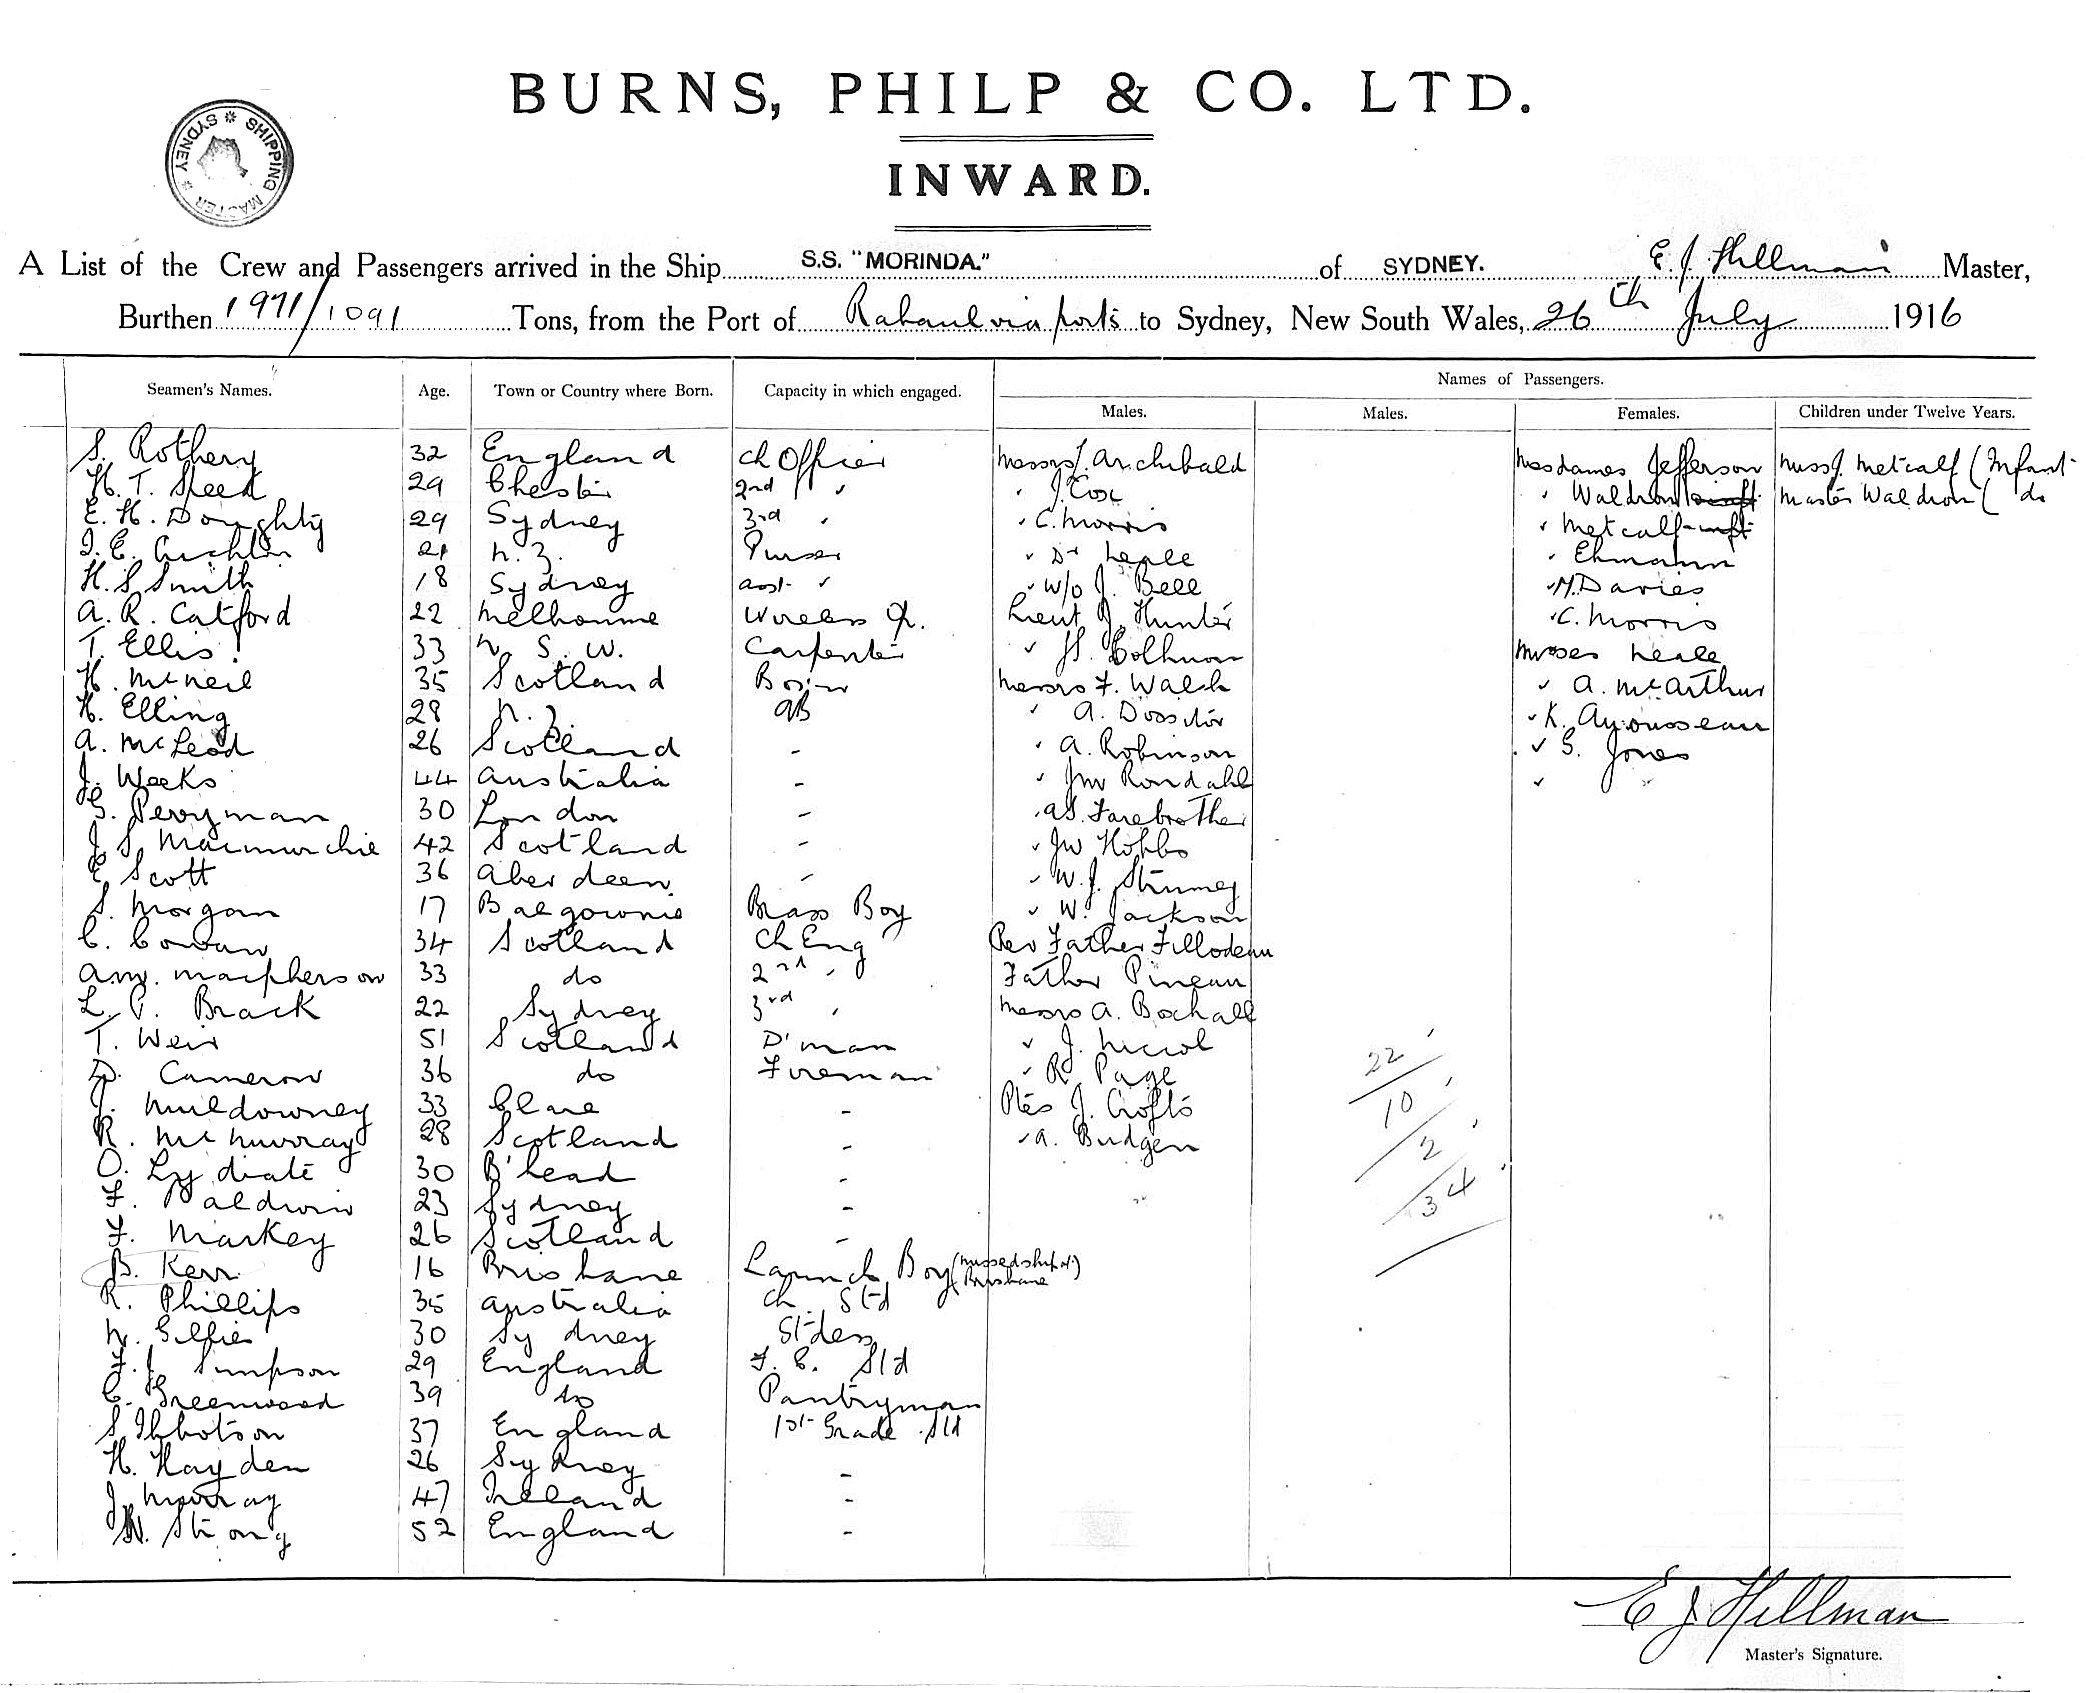 BURNS, PHILP & CO. LTD.
SHIPPING MASTER * SYDNEY *
INWARD.
A List of the Crew and Passengers arrived in the Ship S.S. "MORINDA." of SYDNEY. E. J. Hillman Master,
Burthen 1971/1091 Tons, from the Port of Rabaul via ports to Sydney, New South Wales, 26th July 1916
Names of Passengers.
Seamen's Names. Age. Town or Country where Born. Capacity in which engaged. Males. Males. Females. Children under Twelve Years.
S. Rothery 32 England Ch Officer Messrs J. Archibald Mesdames Jefferson Miss J. Metcalf (Infant
H. T. Speed 29 Chester 2nd " " J. Cox " Waldron Master Waldron ( do
E. H. Doughty 29 Sydney 3rd " " C. Morris " Metcalf
N. Z. Purser " Dr Neale " Ehmann
H. S Smith 18 Sydney asst " " W/o J. Bell " M. Davies
A. R. Catford 22 Melbourne Wireless Op. Lieut J. Hunter " C. Morris
T. Ellis 33 N. S. W. Carpenter " Misses Neale
H. McNeil 35 Scotland Bosun Messrs F. Walsh " A. McArthur
H. Elling 28 N. Z. AB " A. " K.
A. McLeod 26 Scotland - " A. Robinson " G. Jones
J. Weeks 44 Australia - " JW Rondahl "
G. Perryman 30 London - " AS. Farebrother
J. S. Macmurchie 42 Scotland - " JW Hobbs
E Scott 36 Aberdeen - " W. J.
S. Morgan 17 Balgownie Brass Boy " W. Jackson
C. Cowan 34 Scotland Ch Eng Rev Father Fillodeau
A.W. Macpherson 33 do 2nd " Father Pineau
L. P. Brack 22 Sydney 3rd " Messrs A. Boxhall
T. Weir 51 Scotland D'man " J. Nicol
D. Cameron 36 do Fireman " R. Page
J. Muldowney 33 Clare - Ptes J. Crofts
R. McMurray 28 Scotland - " A. Budgen
O. Lydiate 30 B'head -
F. Baldwin 23 Sydney -
F. Markey 26 Scotland -
B. Kerr 16 Brisbane Launch Boy (missed ship at Brisbane)
R. Phillips 35 Australia Ch. Std
N. Gilfie 30 Sydney St-dess
F. J. Simpson 29 England F. C. Std
C. Greenwood 39 do Pantryman
S. Ibbotson 37 England 1st Grade Std
H. Hayden 26 Sydney -
J. Murray 47 Ireland -
W. Strong 52 England -
22
10
2
34
E J Hillman
Master's Signature.